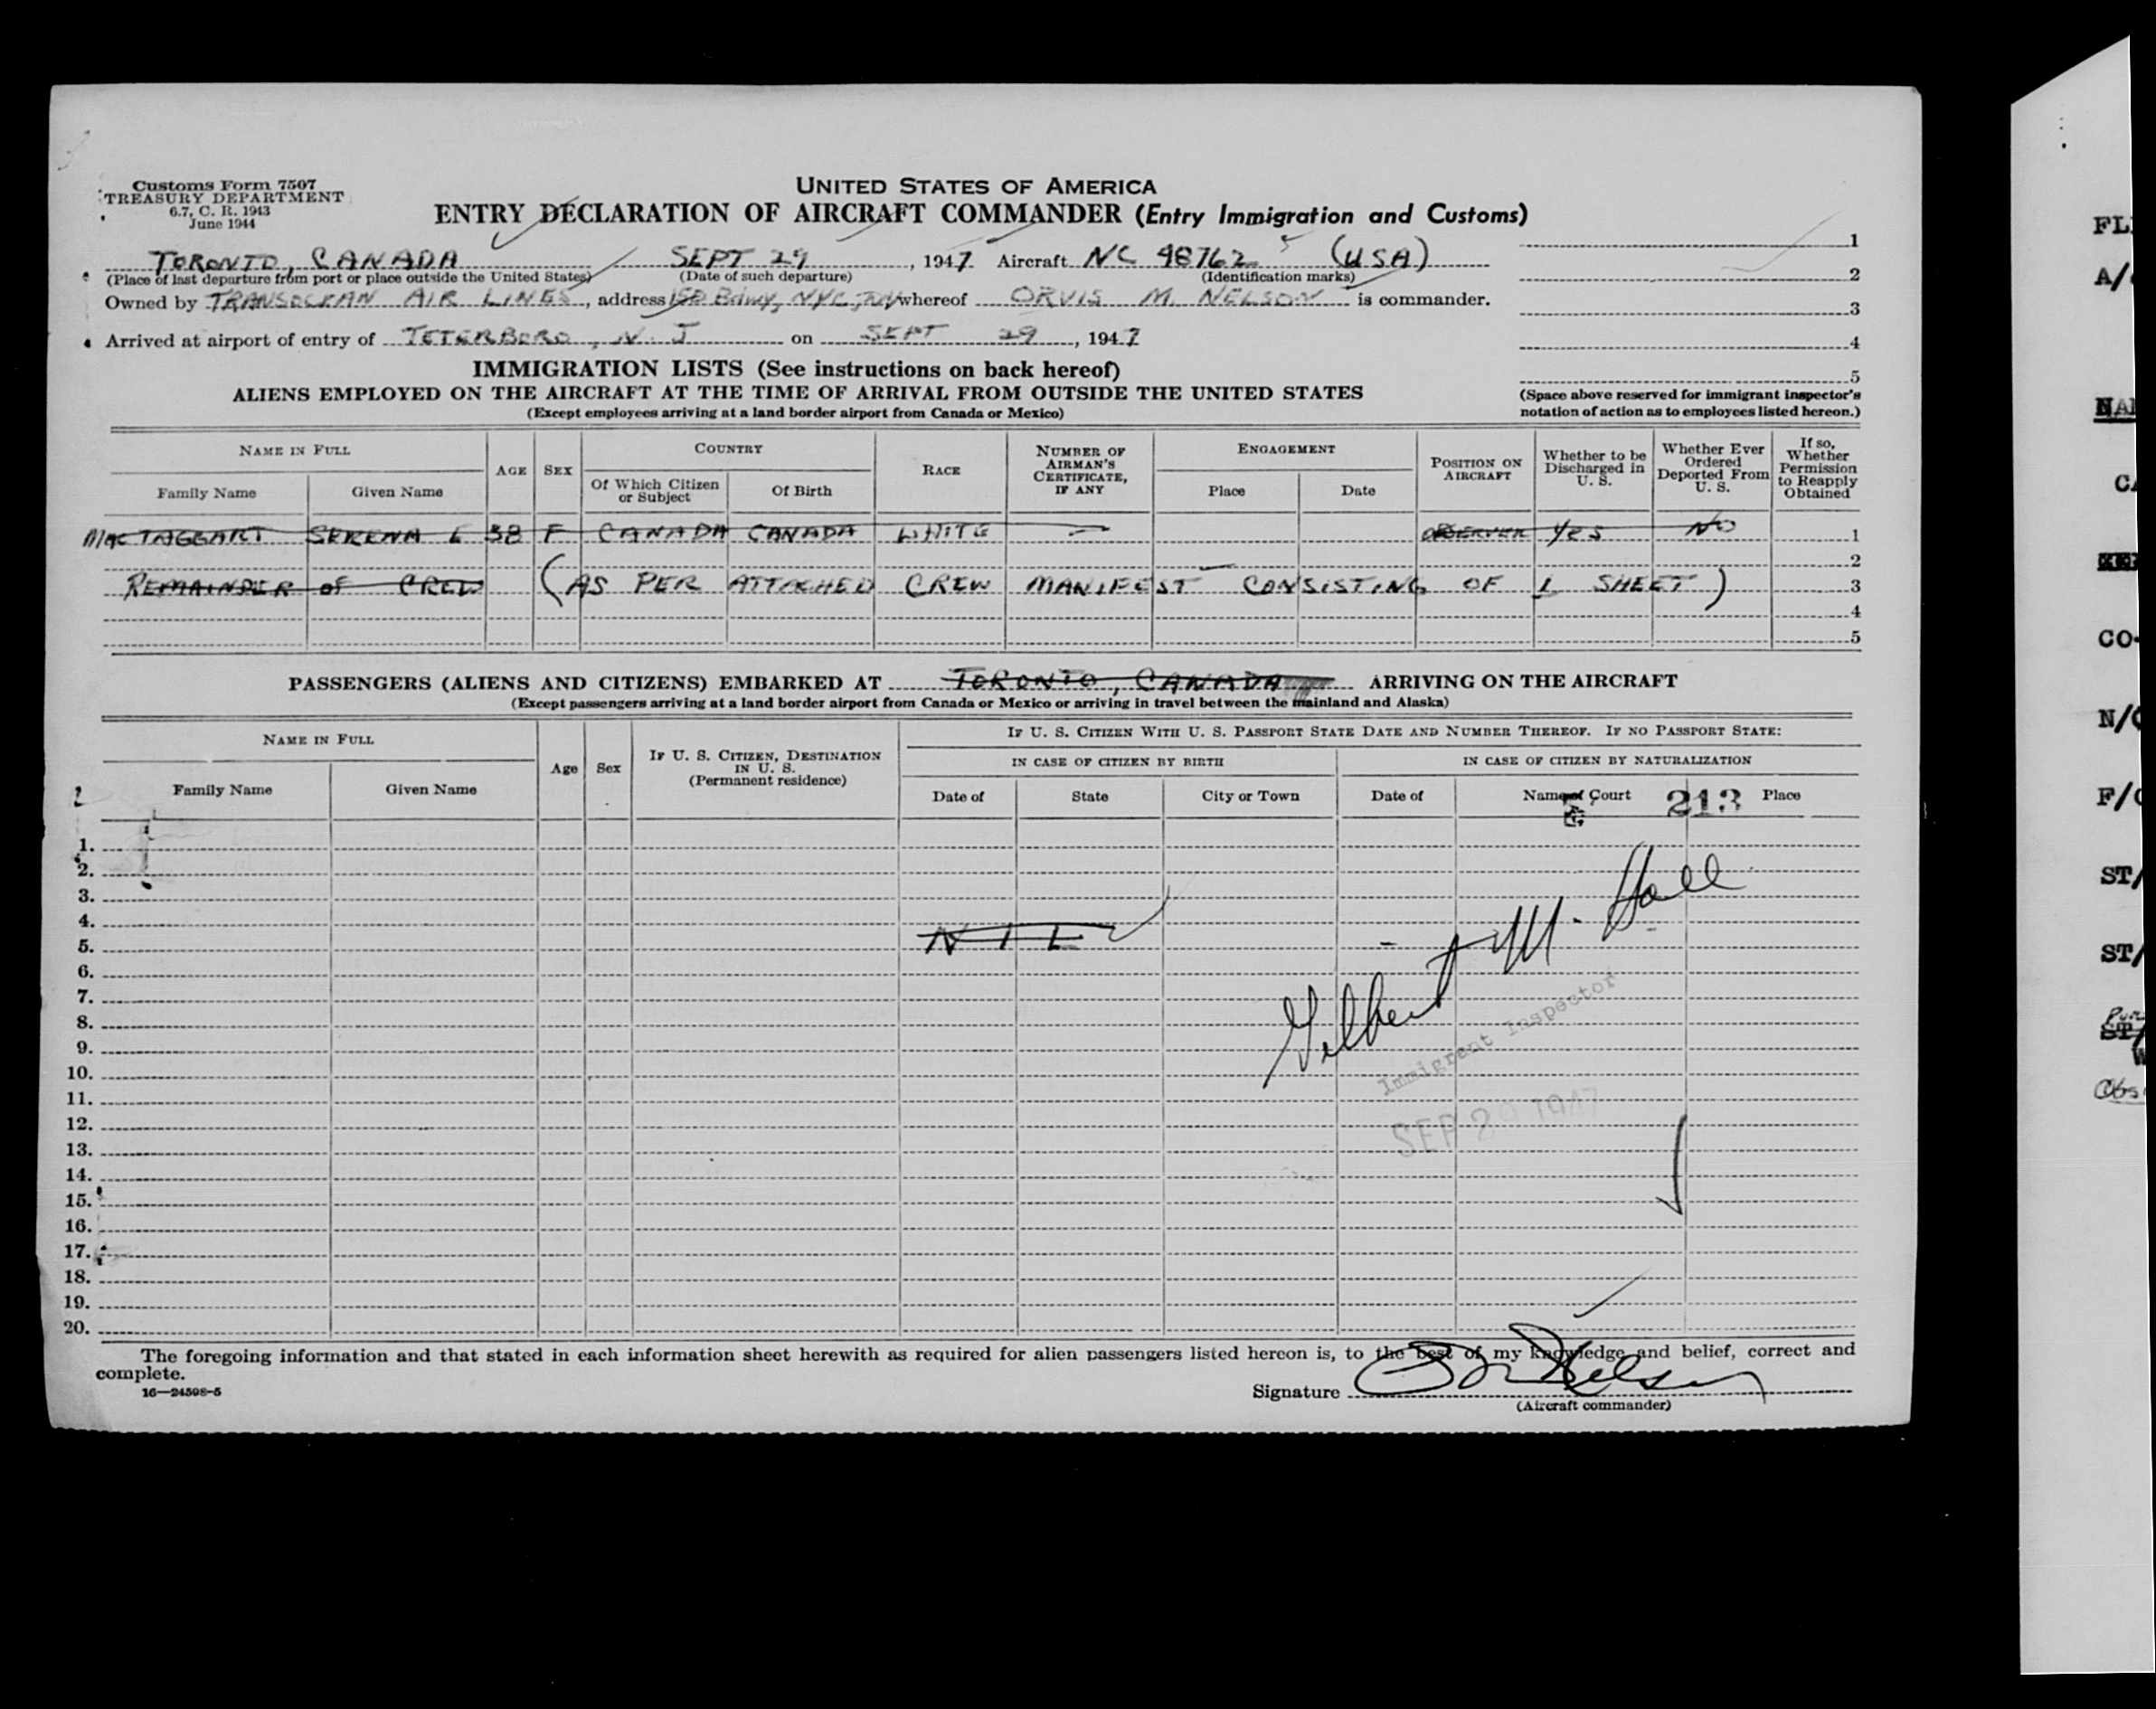 Customs Form 7507
TREASURY DEPARTMENT
6.7, C. R. 1943
June 1944
UNITED STATES OF AMERICA
ENTRY DECLARATION OF AIRCRAFT COMMANDER (Entry Immigration and Customs)
TORONTO, CANADA SEPT 29, 1947 Aircraft NC 98762 (USA)
(Place of last departure from port or place outside the United States) (Date of such departure) (Identification marks)
Owned by TRANSOCEAN AIR LINES, address NYC, whereof ORVIS M. NELSON is commander.
Arrived at airport of entry of TETERBORO, N. J on SEPT 29, 1947
1
2
3
4
5
(Space above reserved for immigrant inspector's notation of action as to employees listed hereon.)
IMMIGRATION LISTS (See instructions on back hereof)
ALIENS EMPLOYED ON THE AIRCRAFT AT THE TIME OF ARRIVAL FROM OUTSIDE THE UNITED STATES
(Except employees arriving at a land border airport from Canada or Mexico)
NAME IN FULL AGE SEX COUNTRY RACE NUMBER OF AIRMAN'S CERTIFICATE, IF ANY ENGAGEMENT POSITION ON AIRCRAFT Whether to be Discharged in U. S. Whether Ever Ordered Deported From U. S. If so, Whether Permission to Reapply Obtained
Family Name Given Name Of Which Citizen or Subject Of Birth Place Date
MACTAGGART SERENA E 38 F CANADA CANADA WHITE — OBSERVER Yes NO 1
2
REMAINDER OF CREW (AS PER ATTACHED CREW MANIFEST CONSISTING OF 1 SHEET) 3
4
5
PASSENGERS (ALIENS AND CITIZENS) EMBARKED AT TORONTO, CANADA ARRIVING ON THE AIRCRAFT
(Except passengers arriving at a land border airport from Canada or Mexico or arriving in travel between the mainland and Alaska)
NAME IN FULL Age Sex IF U. S. CITIZEN, DESTINATION IN U. S. (Permanent residence) IF U. S. CITIZEN WITH U. S. PASSPORT STATE DATE AND NUMBER THEREOF. IF NO PASSPORT STATE:
IN CASE OF CITIZEN BY BIRTH IN CASE OF CITIZEN BY NATURALIZATION
Family Name Given Name Date of State City or Town Date of Name of Court 213 Place
1.
2.
3.
4.
5. NIL
6.
7.
8.
9.
10.
11.
12.
13.
14.
15.
16.
17.
18.
19.
20.
Gilbert M. Hall
Immigrant Inspector
SEP 29 1947
The foregoing information and that stated in each information sheet herewith as required for alien passengers listed hereon is, to the best of my knowledge and belief, correct and
complete.
16—24598-5
Signature O M Nelson
(Aircraft commander)
FL
A/
NA
CA
CO-
N/
F/
ST/
ST/
ST/
Obs